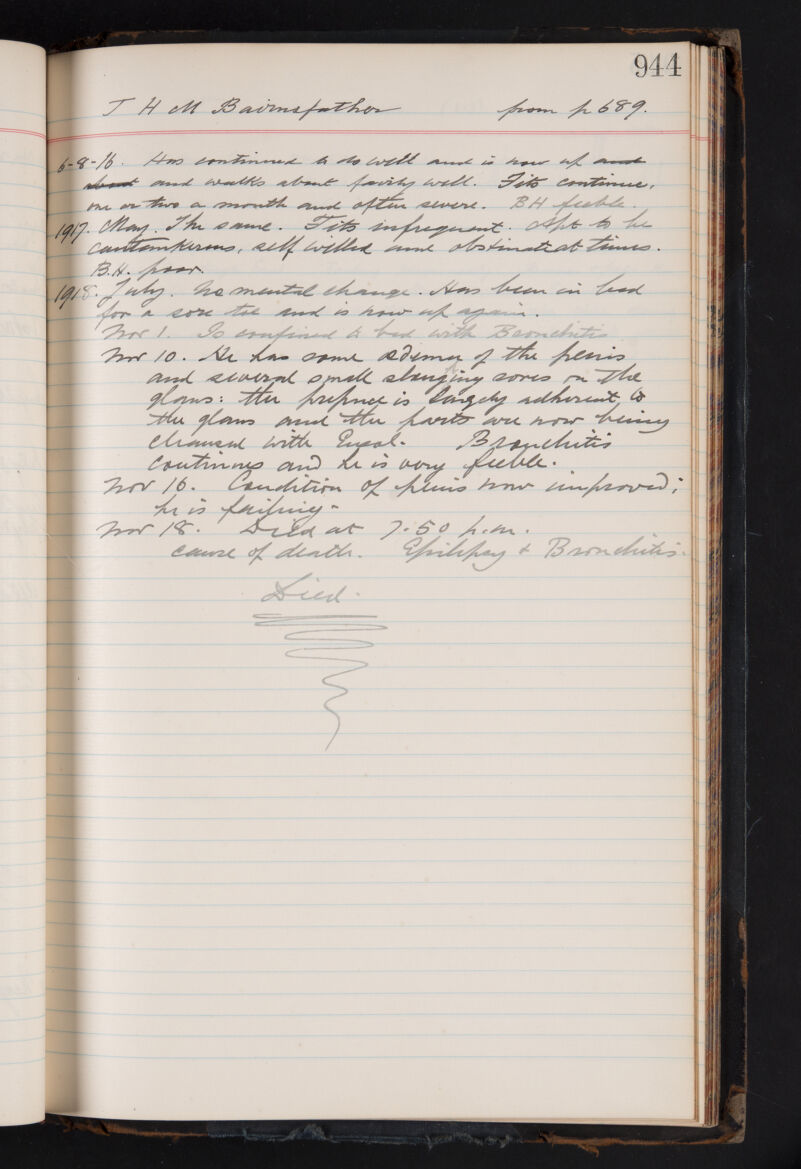 944
J H M Bairnsfather from p 689.
6-8-16. Has continued to do well and is now up and
about and walks about fairly well. Fits continue,
one or two a month and often severe. BH feeble.
1917. May. The same. Fits infrequent. Apt to be
cantankerous, self willed and obstinate at times.
B.H. poor.
1918. July. No mental change. Has been in bed
for a sore toe and is now up again.
Nov 1. Is confined to bed with Bronchitis
Nov 10. He has some œdema of the penis
and several small sloughing sores on the
glans: the prepuce is largely adherent to
the glans and the parts are now being
cleansed with Eusol. Bronchitis
continues and he is very feeble.
Nov 16. Condition of penis now improved:
he is failing.
Nov 18. Died at 7.50 p.m.
cause of death. Epilepsy & Bronchitis.
Died.